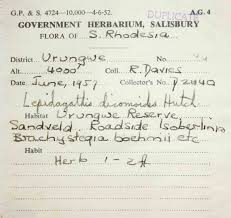 DUPLICATE
G.P. & S. 4724—10,000—4-6-52. A.G. 4
GOVERNMENT HERBARIUM, SALISBURY
FLORA OF S. Rhodesia
District Urungwe No.
Alt. 4000 Coll. R. Davies
Date June, 1957 Collector's No. D2440
Lepidagathis dicomoides Hutch
Habitat Urungwe Reserve,
Sandveld, Roadside Isoberlinia
Brachystegia boehmii etc
Habit
Herb 1-2ft